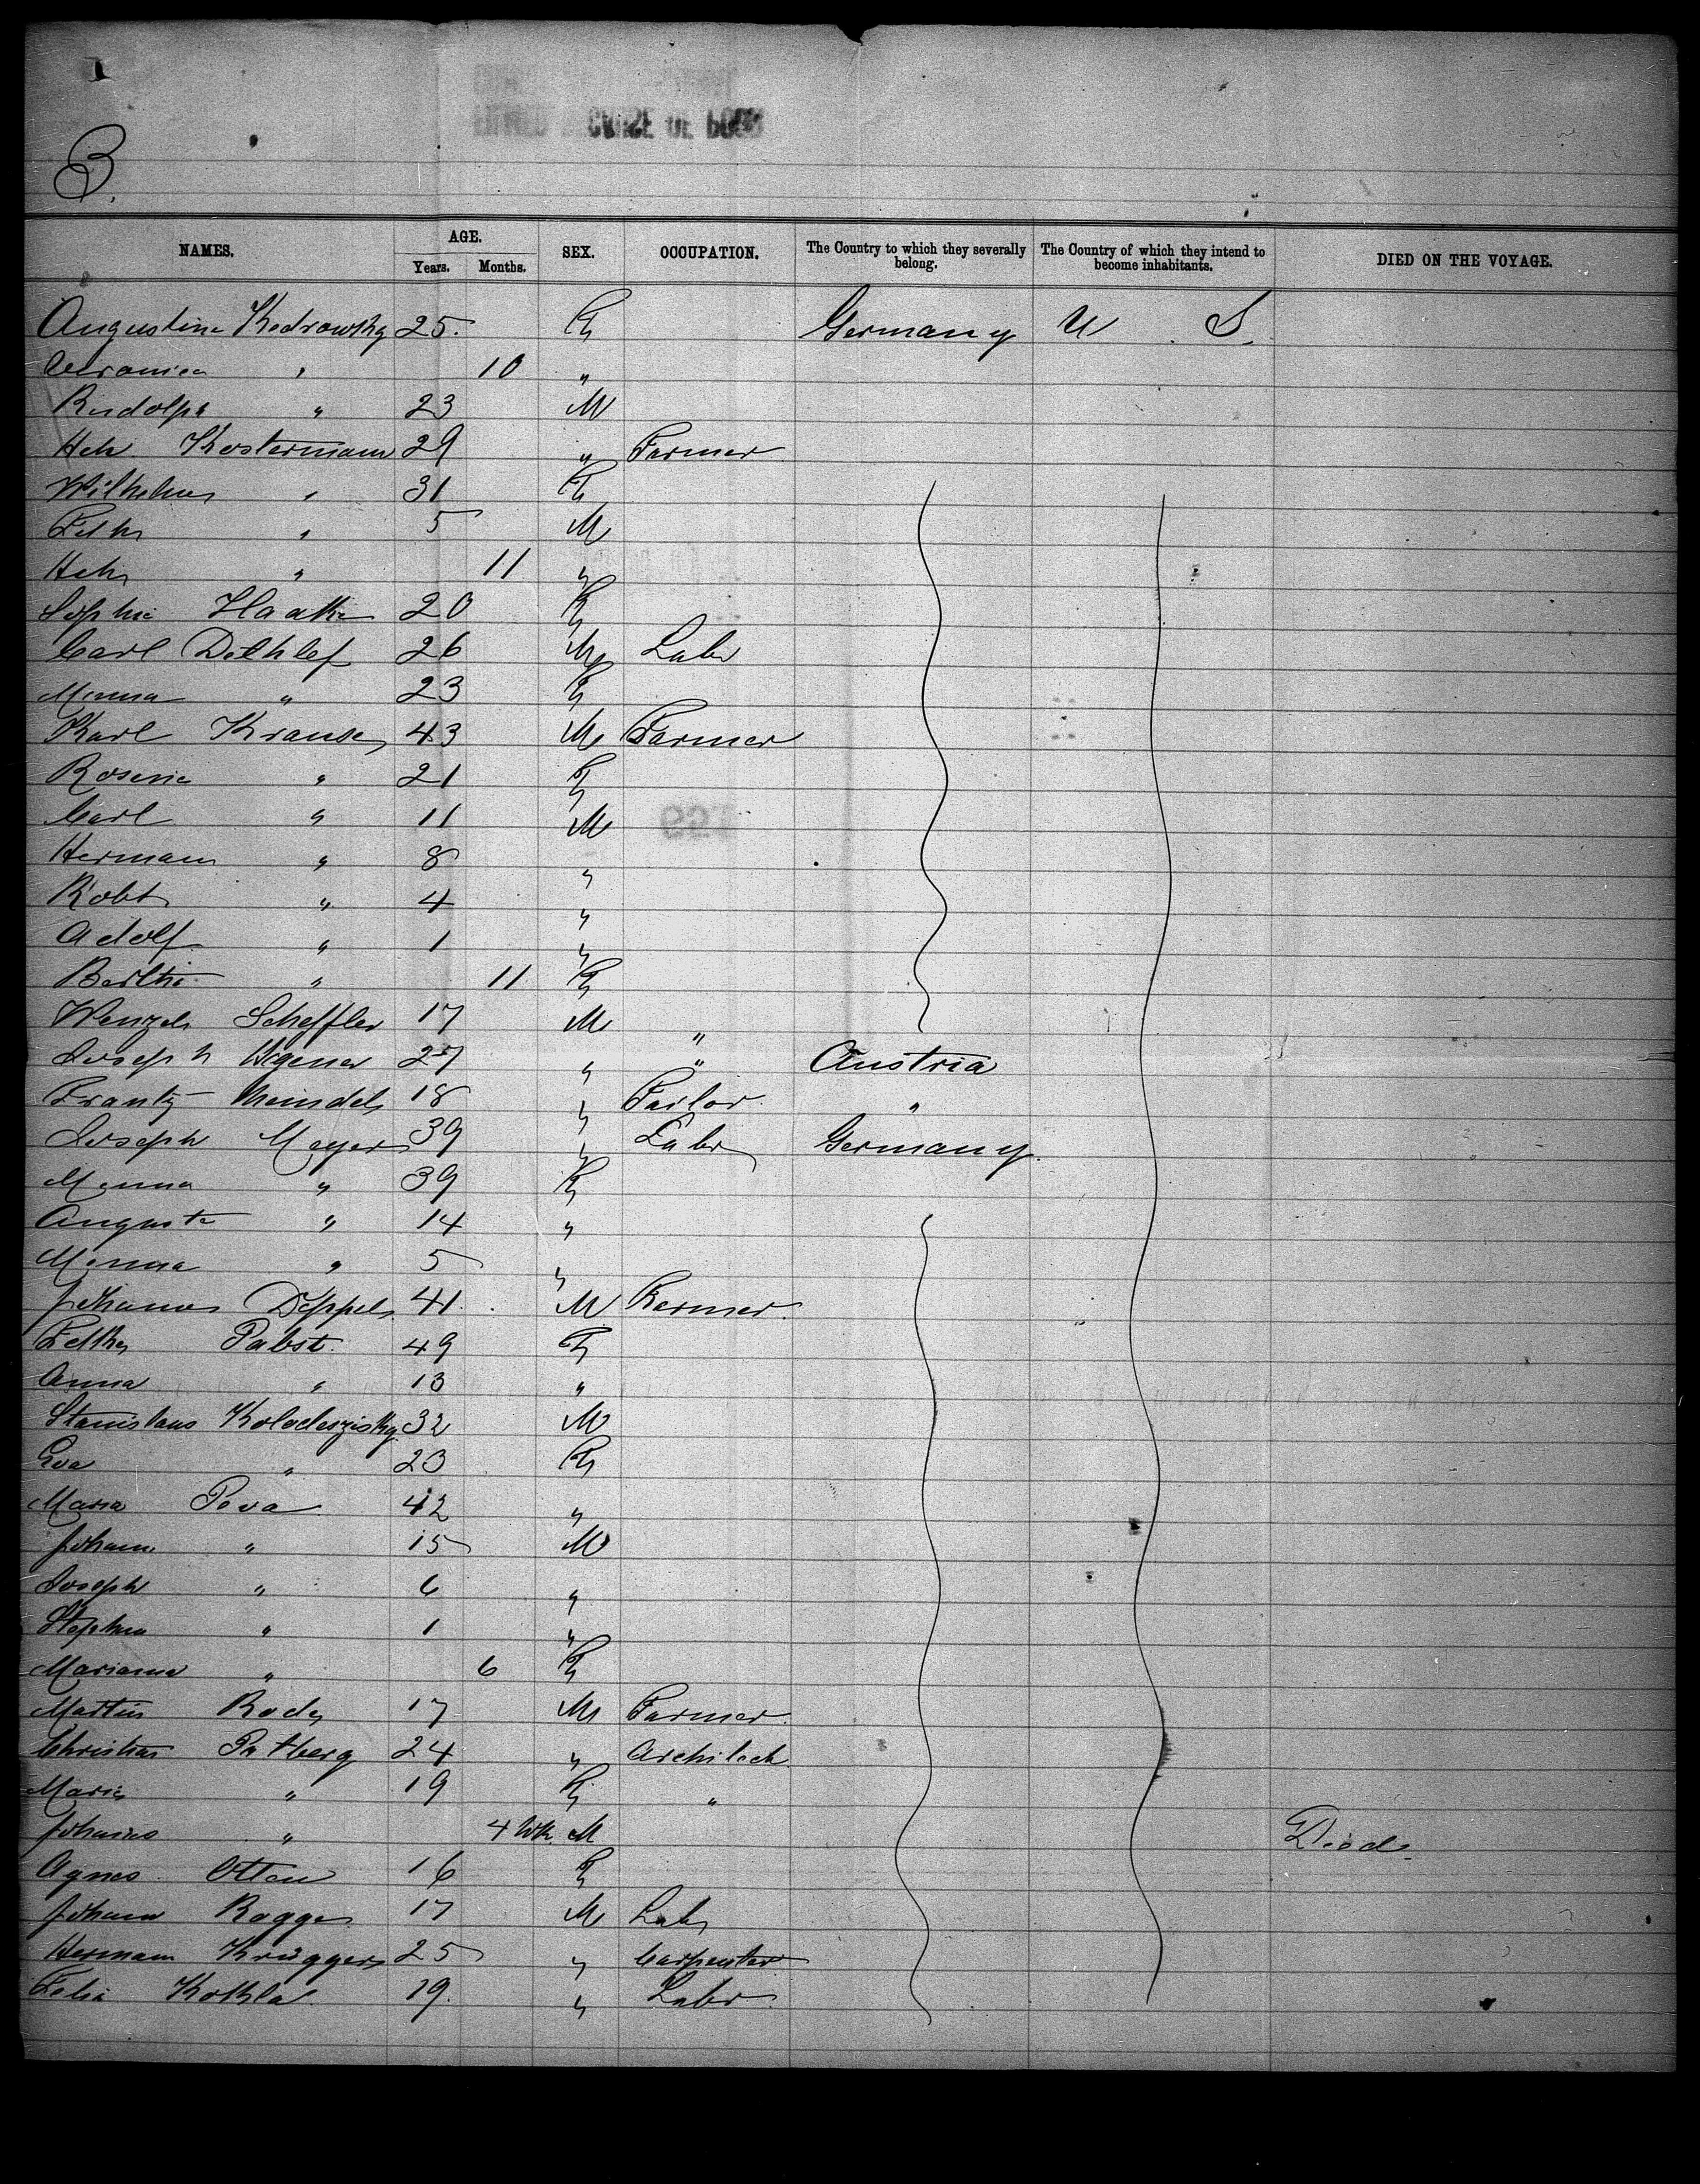 3.
NAMES. AGE. Years. Months. SEX. OCCUPATION. The Country to which they severally belong. The Country of which they intend to become inhabitants. DIED ON THE VOYAGE.
Augustine Kedrowsky 25. F Germany U S.
Veronica " 10 "
Rudolph " 23 M
Hch Kostermann 29 " Farmer
Wilhelm " 31 F
" 5 M
Hch " 11 "
Sophie Haake 20 F
Carl Dethlef 26 M Labr
Minna " 23 F
Karl Krause 43 M Farmer
Rosine " 21 F
Carl " 11 M
Hermann " 8 "
Robt " 4 "
Adolf " 1 "
Bertha " 11 F
Wenzel Scheffler 17 M "
Joseph Wagener 27 " " Austria
Frantz Meindel 18 " Tailor "
Joseph Meyer 39 " Labr Germany
Minna " 39 F
Auguste " 14 "
Minna " 5 "
Johannes Deppel 41 M Farmer
Pabst 49 F
Anna " 13 "
Stanislaus Kolodeszisky 32 M
Eva " 23 F
Maria Peva 42 "
Johann " 15 M
Joseph " 6 "
Stephan " 1 "
Marianna " 6 F
Martin Rode 17 M Farmer
Christian Patberg 24 " Architect
Marie " 19 F "
Johannes " 4 Wk. M Died.
Agnes Otten 16 F
Johann Rogge 17 M Labr
Hermann Krügger 25 " Carpenter
Felix Kothla 19. " Labr